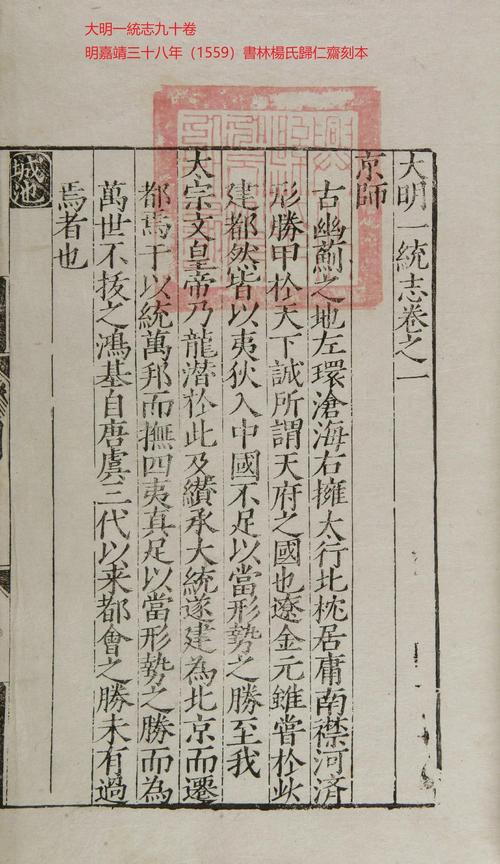 大明一統志九十卷
明嘉靖三十八年（1559）書林楊氏歸仁齋刻本
大明一統志卷之一
京師
古幽薊之地左環滄海右擁太行北枕居庸南襟河濟
形勝甲於天下誠所謂天府之國也遼金元雖嘗於此
建都然皆以夷狄入中國不足以當形勢之勝至我
太宗文皇帝乃龍潛於此及纘承大統遂建為北京而遷
都焉于以統萬邦而撫四夷真足以當形勢之勝而為
萬世不拔之鴻基自唐虞三代以来都會之勝未有過
焉者也
城池